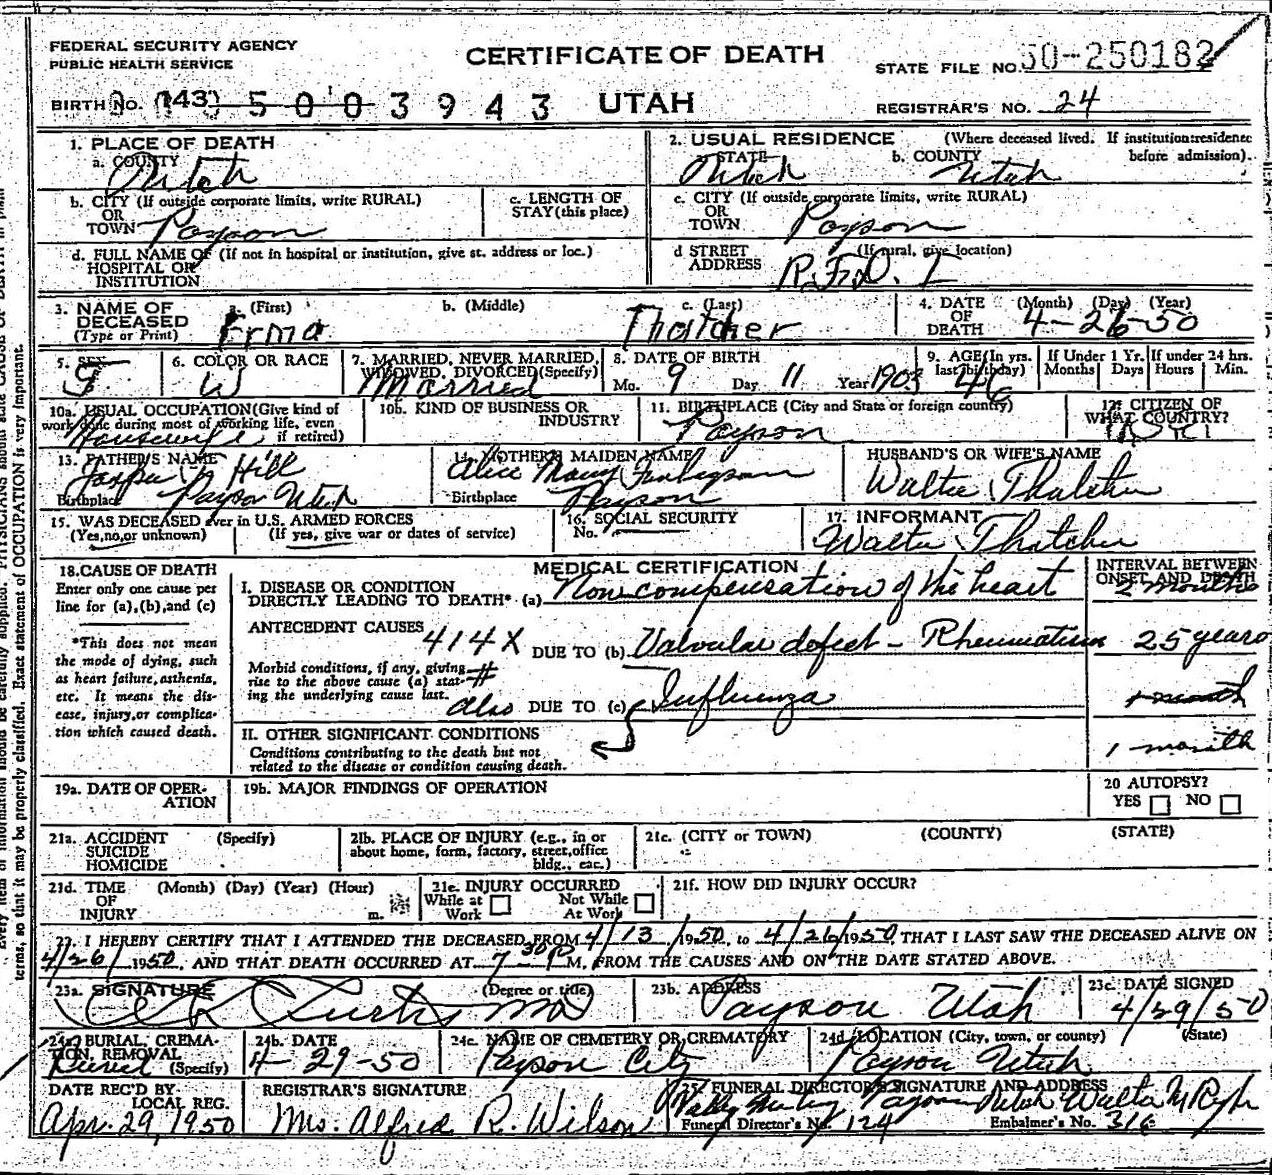 FEDERAL SECURITY AGENCY
PUBLIC HEALTH SERVICE
CERTIFICATE OF DEATH
STATE FILE NO. 50-250182
BIRTH NO. (143) 5003943 UTAH
REGISTRAR'S NO. 24
1. PLACE OF DEATH
a. COUNTY
Utah
2. USUAL RESIDENCE (Where deceased lived. If institution:residence before admission).
STATE b. COUNTY
Utah Utah
b. CITY (If outside corporate limits, write RURAL)
OR
TOWN Payson
c. LENGTH OF
STAY (this place)
c. CITY (If outside corporate limits, write RURAL)
OR
TOWN Payson
d. FULL NAME OF (If not in hospital or institution, give st. address or loc.)
HOSPITAL OR
INSTITUTION
d STREET (If rural, give location)
ADDRESS R.F.D. 1
3. NAME OF a. (First) b. (Middle) c. (Last)
DECEASED
(Type or Print) Erma Thatcher
4. DATE (Month) (Day) (Year)
OF
DEATH 4-26-50
5. SEX
F
6. COLOR OR RACE
W
7. MARRIED, NEVER MARRIED,
WIDOWED, DIVORCED (Specify)
Married
8. DATE OF BIRTH
Mo. 9 Day 11 Year 1903
9. AGE (In yrs.
last birthday)
46
If Under 1 Yr.
Months Days
If under 24 hrs.
Hours Min.
10a. USUAL OCCUPATION (Give kind of
work done during most of working life, even
if retired)
Housewife
10b. KIND OF BUSINESS OR
INDUSTRY
11. BIRTHPLACE (City and State or foreign country)
Payson
12. CITIZEN OF
WHAT COUNTRY?
13. FATHER'S NAME
Hill
Birthplace Payson Utah
14. MOTHER'S MAIDEN NAME
Alice Mary
Birthplace Payson
HUSBAND'S OR WIFE'S NAME
Walter Thatcher
15. WAS DECEASED ever in U.S. ARMED FORCES
(Yes,no,or unknown) (If yes, give war or dates of service)
16. SOCIAL SECURITY
No.
17. INFORMANT
Walter Thatcher
18. CAUSE OF DEATH
Enter only one cause per
line for (a),(b),and (c)
*This does not mean
the mode of dying, such
as heart failure, asthenia,
etc. It means the dis-
ease, injury, or complica-
tion which caused death.
MEDICAL CERTIFICATION
INTERVAL BETWEEN
ONSET AND DEATH
I. DISEASE OR CONDITION
DIRECTLY LEADING TO DEATH* (a) Non compensation of the heart 2 months
ANTECEDENT CAUSES
414X DUE TO (b) Valvular defect - Rheumatism 25 years
Morbid conditions, if any, giving
rise to the above cause (a) stat-
ing the underlying cause last.
also DUE TO (c) Influenza 1 month
II. OTHER SIGNIFICANT CONDITIONS
Conditions contributing to the death but not
related to the disease or condition causing death.
1 month
19a. DATE OF OPER-
ATION
19b. MAJOR FINDINGS OF OPERATION
20 AUTOPSY?
YES NO
21a. ACCIDENT (Specify)
SUICIDE
HOMICIDE
21b. PLACE OF INJURY (e.g., in or
about home, form, factory, street, office
bldg., eac.)
21c. (CITY or TOWN) (COUNTY) (STATE)
21d. TIME (Month) (Day) (Year) (Hour)
OF
INJURY m.
21e. INJURY OCCURRED
While at Not While
Work At Work
21f. HOW DID INJURY OCCUR?
22. I HEREBY CERTIFY THAT I ATTENDED THE DECEASED FROM 4/13/1950, to 4/26/1950 THAT I LAST SAW THE DECEASED ALIVE ON
4/26/1950, AND THAT DEATH OCCURRED AT 7 30 P M, FROM THE CAUSES AND ON THE DATE STATED ABOVE.
23a. SIGNATURE (Degree or title)
Curtis MD
23b. ADDRESS
Payson Utah
23c. DATE SIGNED
4/29/50
24a. BURIAL, CREMA-
TION, REMOVAL
Burial (Specify)
24b. DATE
4-29-50
24c. NAME OF CEMETERY OR CREMATORY
Payson City
24d. LOCATION (City, town, or county) (State)
Payson Utah
DATE REC'D BY
LOCAL REG.
Apr. 29, 1950
REGISTRAR'S SIGNATURE
Mrs. Alfred R. Wilson
25. FUNERAL DIRECTOR'S SIGNATURE AND ADDRESS
Payson Utah Walter
Funeral Director's No. 124 Embalmer's No. 316
terms, so that it may be properly classified. Exact statement of OCCUPATION is very important.